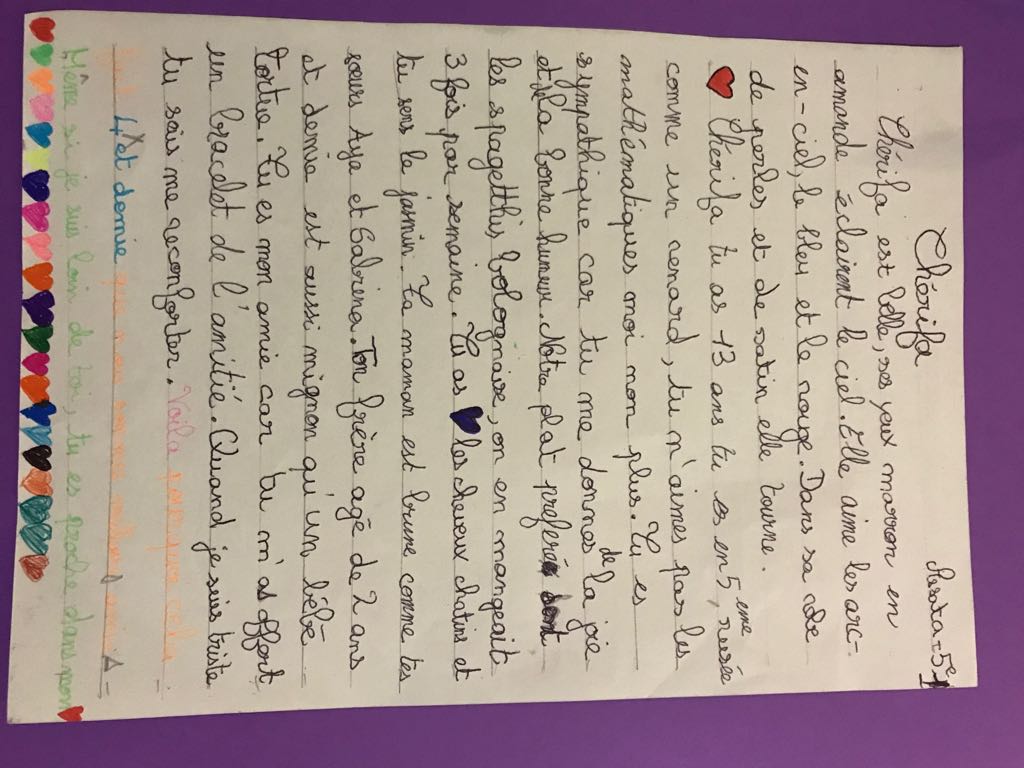 5e1
Chérifa
Chérifa est belle, ses yeux marron en
amande éclairent le ciel. Elle aime les arc-
en-ciel, le bleu et le rouge. Dans sa robe
de perles et de satin elle tourne.
Chérifa tu as 13 ans tu es en 5eme, rusée
comme un renard, tu n'aimes pas les
mathématiques moi non plus. Tu es
sympathique car tu me donnes de la joie
et de la bonne humeur. Notre plat preferé
les spagetthis bolognaise, on en mangeait
3 fois par semaine. Tu as les cheveux chatins et
tu sens le jasmin. Ta maman est brune comme tes
sœurs Aya et Sabrina. Ton frère agé de 2 ans
et demie est aussi mignon qu'un bébé
tortue. Tu es mon amie car tu m'as offert
un bracelet de l'amitié. Quand je suis triste
tu sais me reconforter. Voila pourquoi cela
4 et demie que nous sommes meilleures amies
Même si je suis loin de toi, tu es proche dans mon